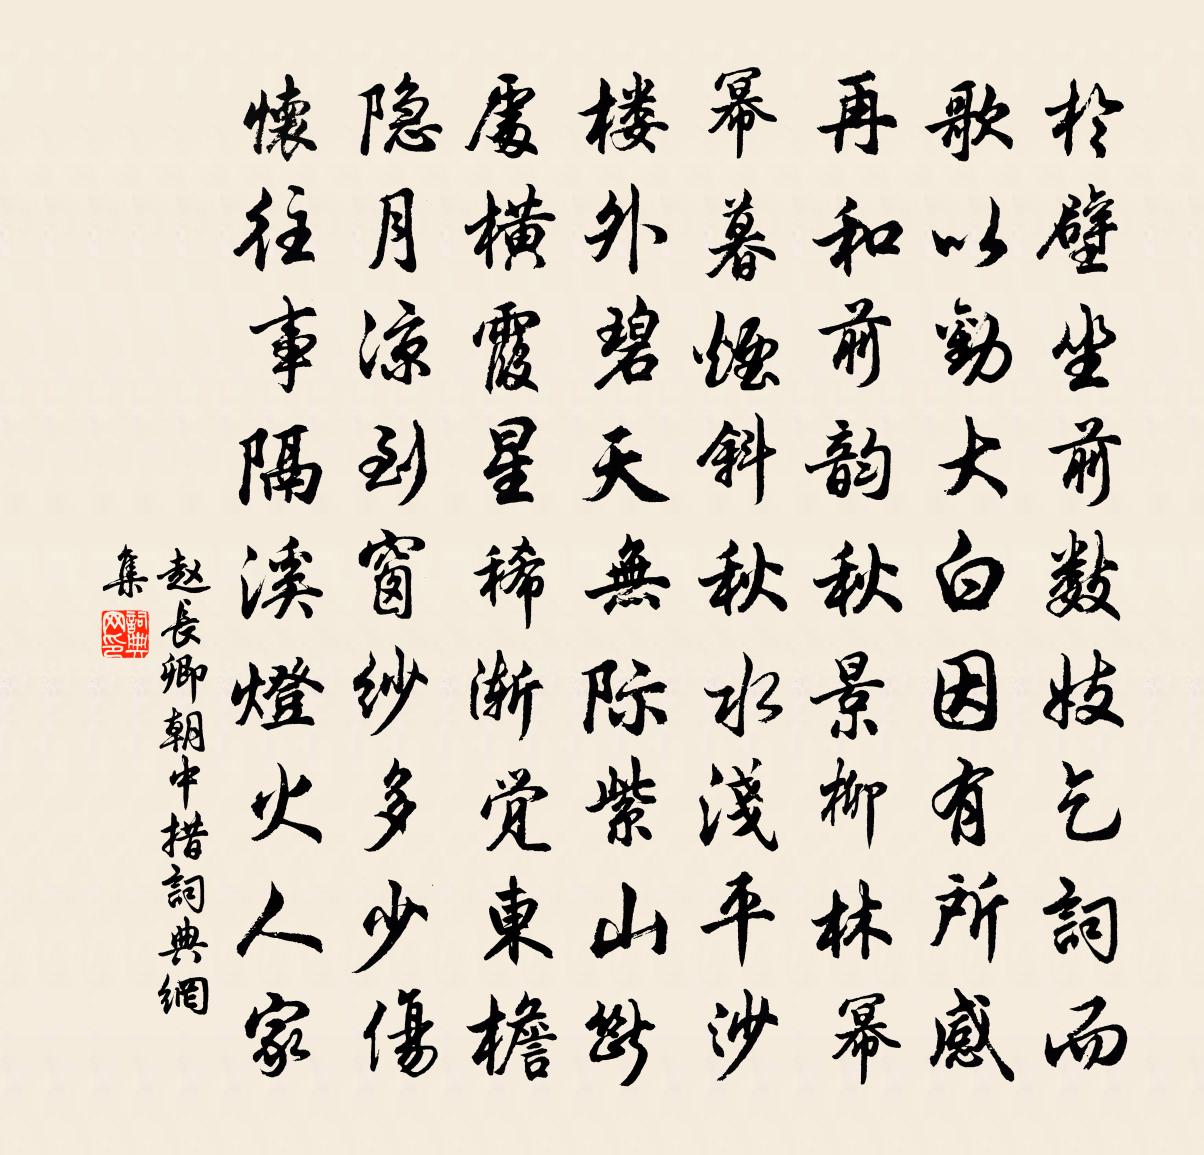 於壁坐前數妓乞詞而
歌以勸大白因有所感
再和前韵秋景柳林幂
幂暮煙斜秋水淺平沙
楼外碧天無际紫山斷
處横霞星稀渐觉東檐
隐月凉到窗纱多少傷
懷往事隔溪燈火人家
赵長卿朝中措詞典網
集
詞典网印